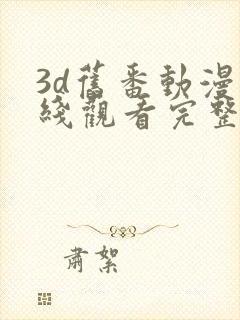 3d舊番動漫
綫觀看完整
肅絮